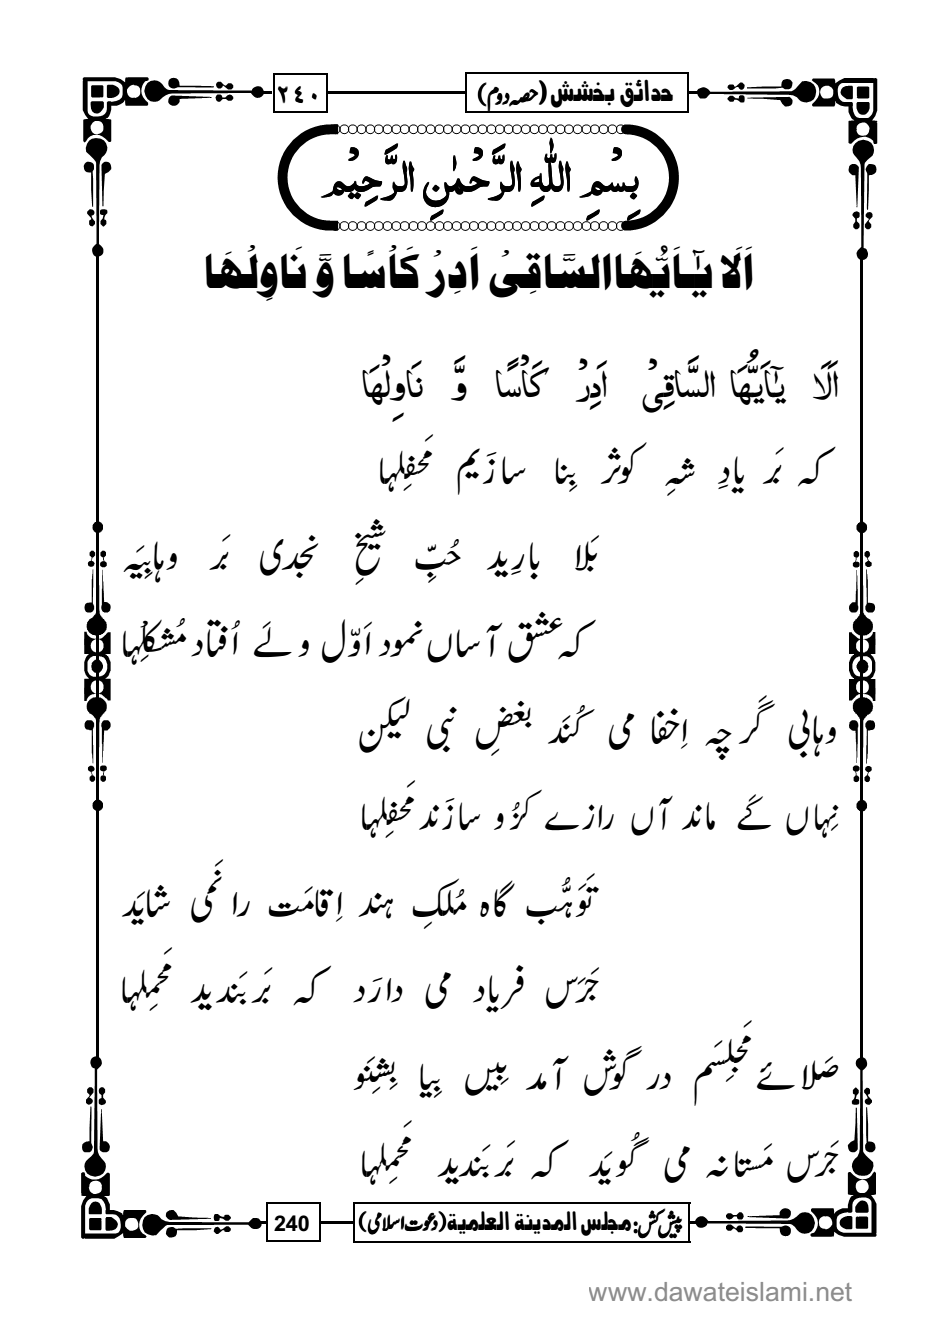 حدائق بخشش (حصہ دوم) ٢٤٠
بِسْمِ اللّٰهِ الرَّحْمٰنِ الرَّحِيْمِ
اَلَا یٰۤاَیُّهَا السَّاقِیْ اَدِرْ کَاْسًا وَّ نَاوِلْهَا
اَلَا یٰۤاَیُّهَا السَّاقِیْ اَدِرْ کَاْسًا وَّ نَاوِلْهَا
کہ بَر یادِ شہِ کوثر بِنا سازَیم مَحفِلہا
بَلا بارِید حُبِّ شیخِ نجدی بَر وہابِیَہ
کہ عشق آساں نمود اَوّل ولے اُفتاد مُشکلِہا
وہابی گَرچہ اِخفا می کُنَد بغضِ نبی لیکن
نِہاں کَے ماند آں رازے کزُو سازَند مَحفِلہا
تَوَہُّب گاہ مُلکِ ہند اِقامَت را نَمی شایَد
جَرَس فریاد می دارَد کہ بَربَندید مَحمِلہا
صَلائے مَجلِسَم در گوش آمد بِیں بِیا بِشِنَو
جَرَس مَستانہ می گُویَد کہ بَربَندید مَحمِلہا
پیش کش: مجلس المدینة العلمیة (دعوت اسلامی) 240
www.dawateislami.net